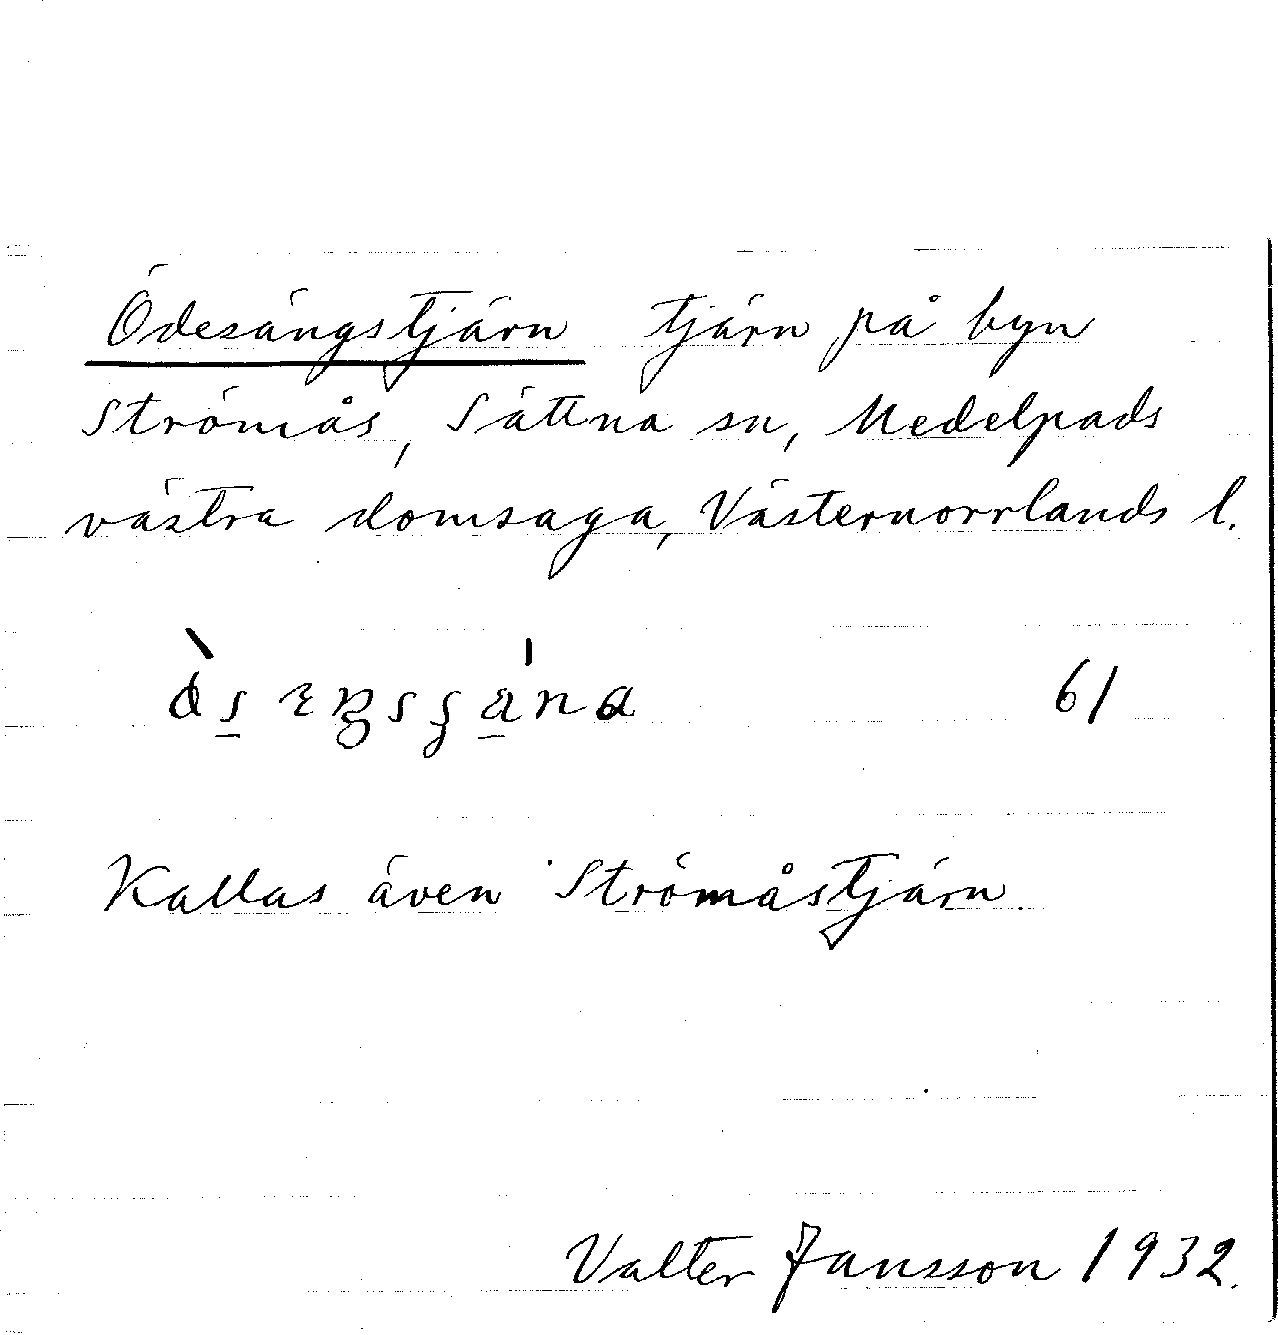 Ödesängstjärn tjärn på byn
Strömås, Sättna sn, Medelpads
västra domsaga, Västernorrlands l.
61
Kallas även Strömåstjärn.
Valter Jansson 1932.